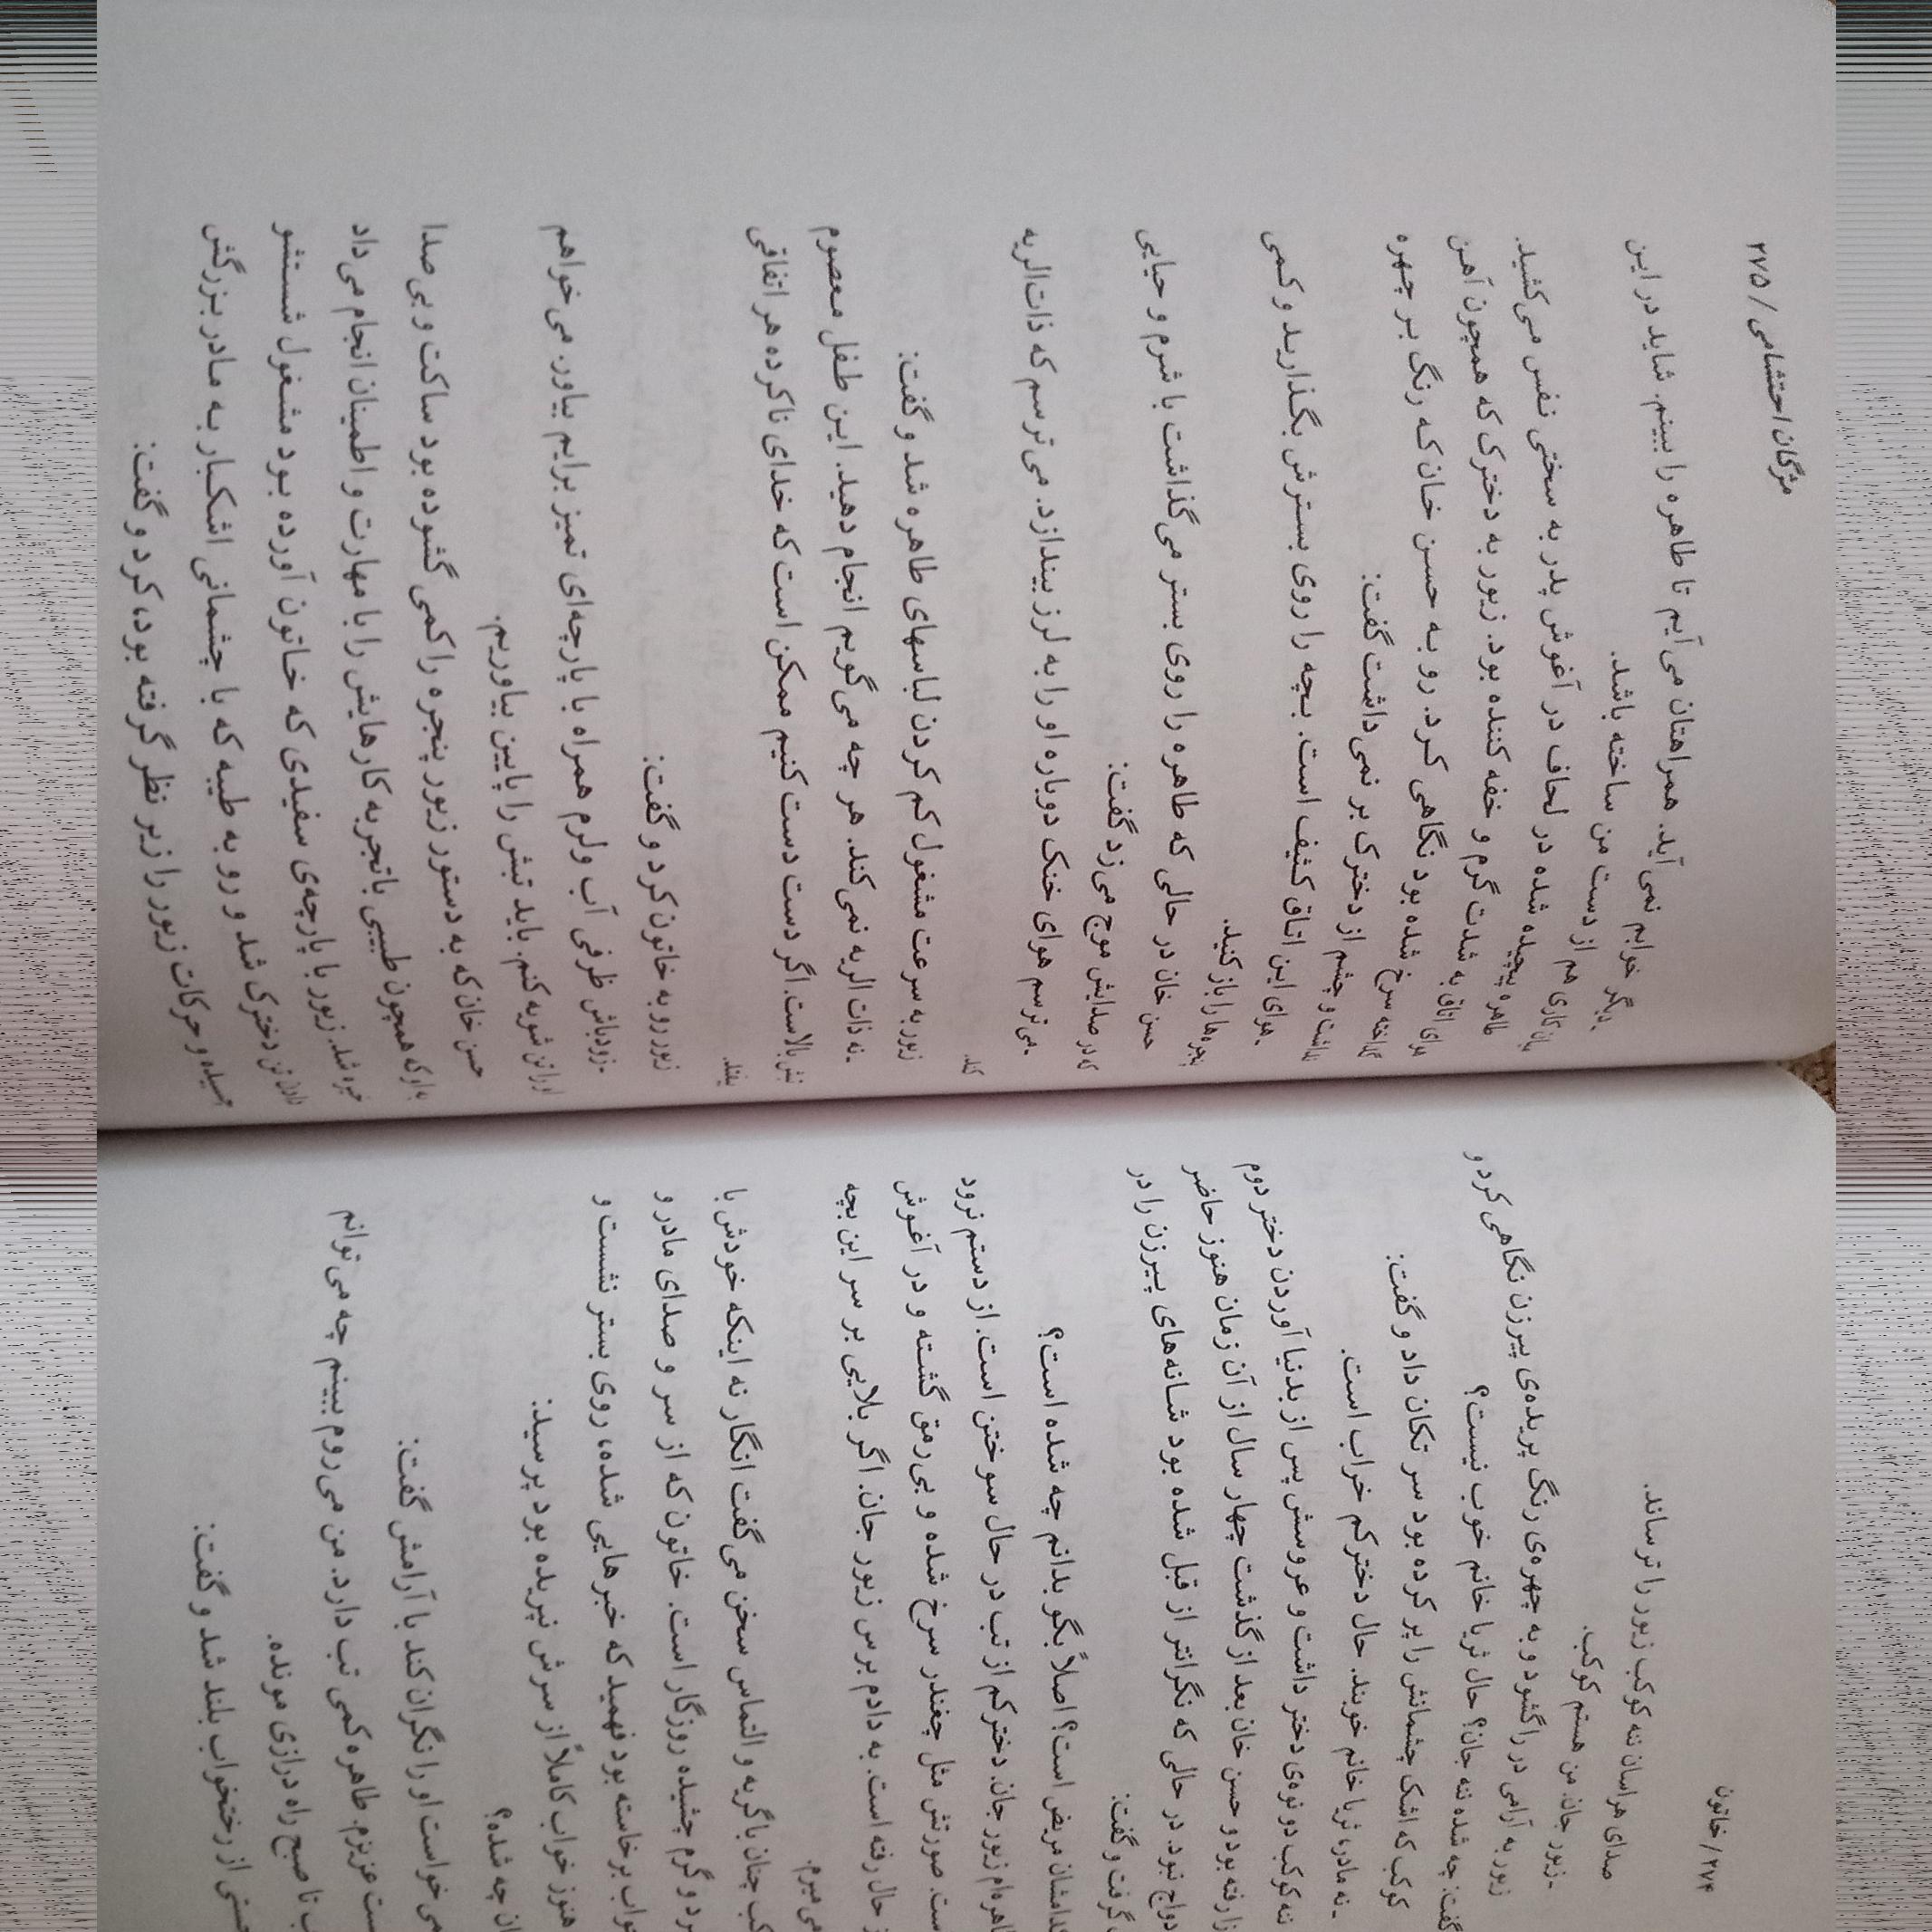 ۲۷۴ / خاتون
صدای هراسان ننه کوکب زیور را ترساند.
-زیور جان. من هستم کوکب.
زیور به آرامی در را گشود و به چهره‌ی رنگ پریده‌ی پیرزن نگاهی کرد و
گفت: چه شده ننه جان؟ حال ثریا خانم خوب نیست؟
کوکب که اشک چشمانش را پر کرده بود سر تکان داد و گفت:
-نه مادر، ثریا خانم خوبند. حال دخترکم خراب است.
ننه کوکب دو نوه‌ی دختر داشت و عروسش پس از بدنیا آوردن دختر دوم
رفته بود و حسن خان بعد از گذشت چهار سال از آن زمان هنوز حاضر
نبود. در حالی که نگرانتر از قبل شده بود شانه‌های پیرزن را در
گرفت و گفت:
مریض است؟ اصلاً بگو بدانم چه شده است؟
زیور جان. دخترکم از تب در حال سوختن است. از دستم نرود
صورتش مثل چغندر سرخ شده و بی‌رمق گشته و در آغوش
حال رفته است. به دادم برس زیور جان. اگر بلایی بر سر این بچه
می‌میرم.
چنان با گریه و التماس سخن می‌گفت انگار نه اینکه خودش با
و گرم چشیده روزگار است. خاتون که از سر و صدای مادر و
برخاسته بود فهمید که خبرهایی شده، روی بستر نشست و
هنوز خواب کاملاً از سرش نپریده بود پرسید:
چه شده؟
می‌خواست او را نگران کند با آرامش گفت:
عزیزم. طاهره کمی تب دارد. من می‌روم ببینم چه می‌توانم
تا صبح راه درازی مونده.
از رختخواب بلند شد و گفت:
مژگان احتشامی / ۲۷۵
-دیگر خوابم نمی‌آید. همراهتان می‌آیم تا طاهره را ببینم. شاید در این
میان کاری هم از دست من ساخته باشد.
طاهره پیچیده شده در لحاف در آغوش پدر به سختی نفس می‌کشید.
هوای اتاق به شدت گرم و خفه کننده بود. زیور به دخترک که همچون آهن
گداخته سرخ شده بود نگاهی کرد. رو به حسن خان که رنگ بر چهره
نداشت و چشم از دخترک بر نمی‌داشت گفت:
-هوای این اتاق کثیف است. بچه را روی بسترش بگذارید و کمی
پنجره‌ها را باز کنید.
حسن خان در حالی که طاهره را روی بستر می‌گذاشت با شرم و حیایی
که در صدایش موج می‌زد گفت:
-می‌ترسم هوای خنک دوباره او را به لرز بیندازد. می‌ترسم که ذات‌الریه
کند.
زیور به سرعت مشغول کم کردن لباسهای طاهره شد و گفت:
-نه ذات الریه نمی‌کند. هر چه می‌گویم انجام دهید. این طفل معصوم
تبش بالاست. اگر دست دست کنیم ممکن است که خدای ناکرده هر اتفاقی
بیفتد.
زیور رو به خاتون کرد و گفت:
-زود باش ظرفی آب ولرم همراه با پارچه‌ای تمیز برایم بیاور. می‌خواهم
او را تن شویه کنم. باید تبش را پایین بیاوریم.
حسن خان که به دستور زیور پنجره را کمی گشوده بود ساکت و بی صدا
به او که همچون طبیبی باتجربه کارهایش را با مهارت و اطمینان انجام می‌داد
خیره شد. زیور با پارچه‌ی سفیدی که خاتون آورده بود مشغول شستشو
دادن تن دخترک شد و رو به طیبه که با چشمانی اشکبار به مادر بزرگش
چسبیده و حرکات زیور را زیر نظر گرفته بود، کرد و گفت: